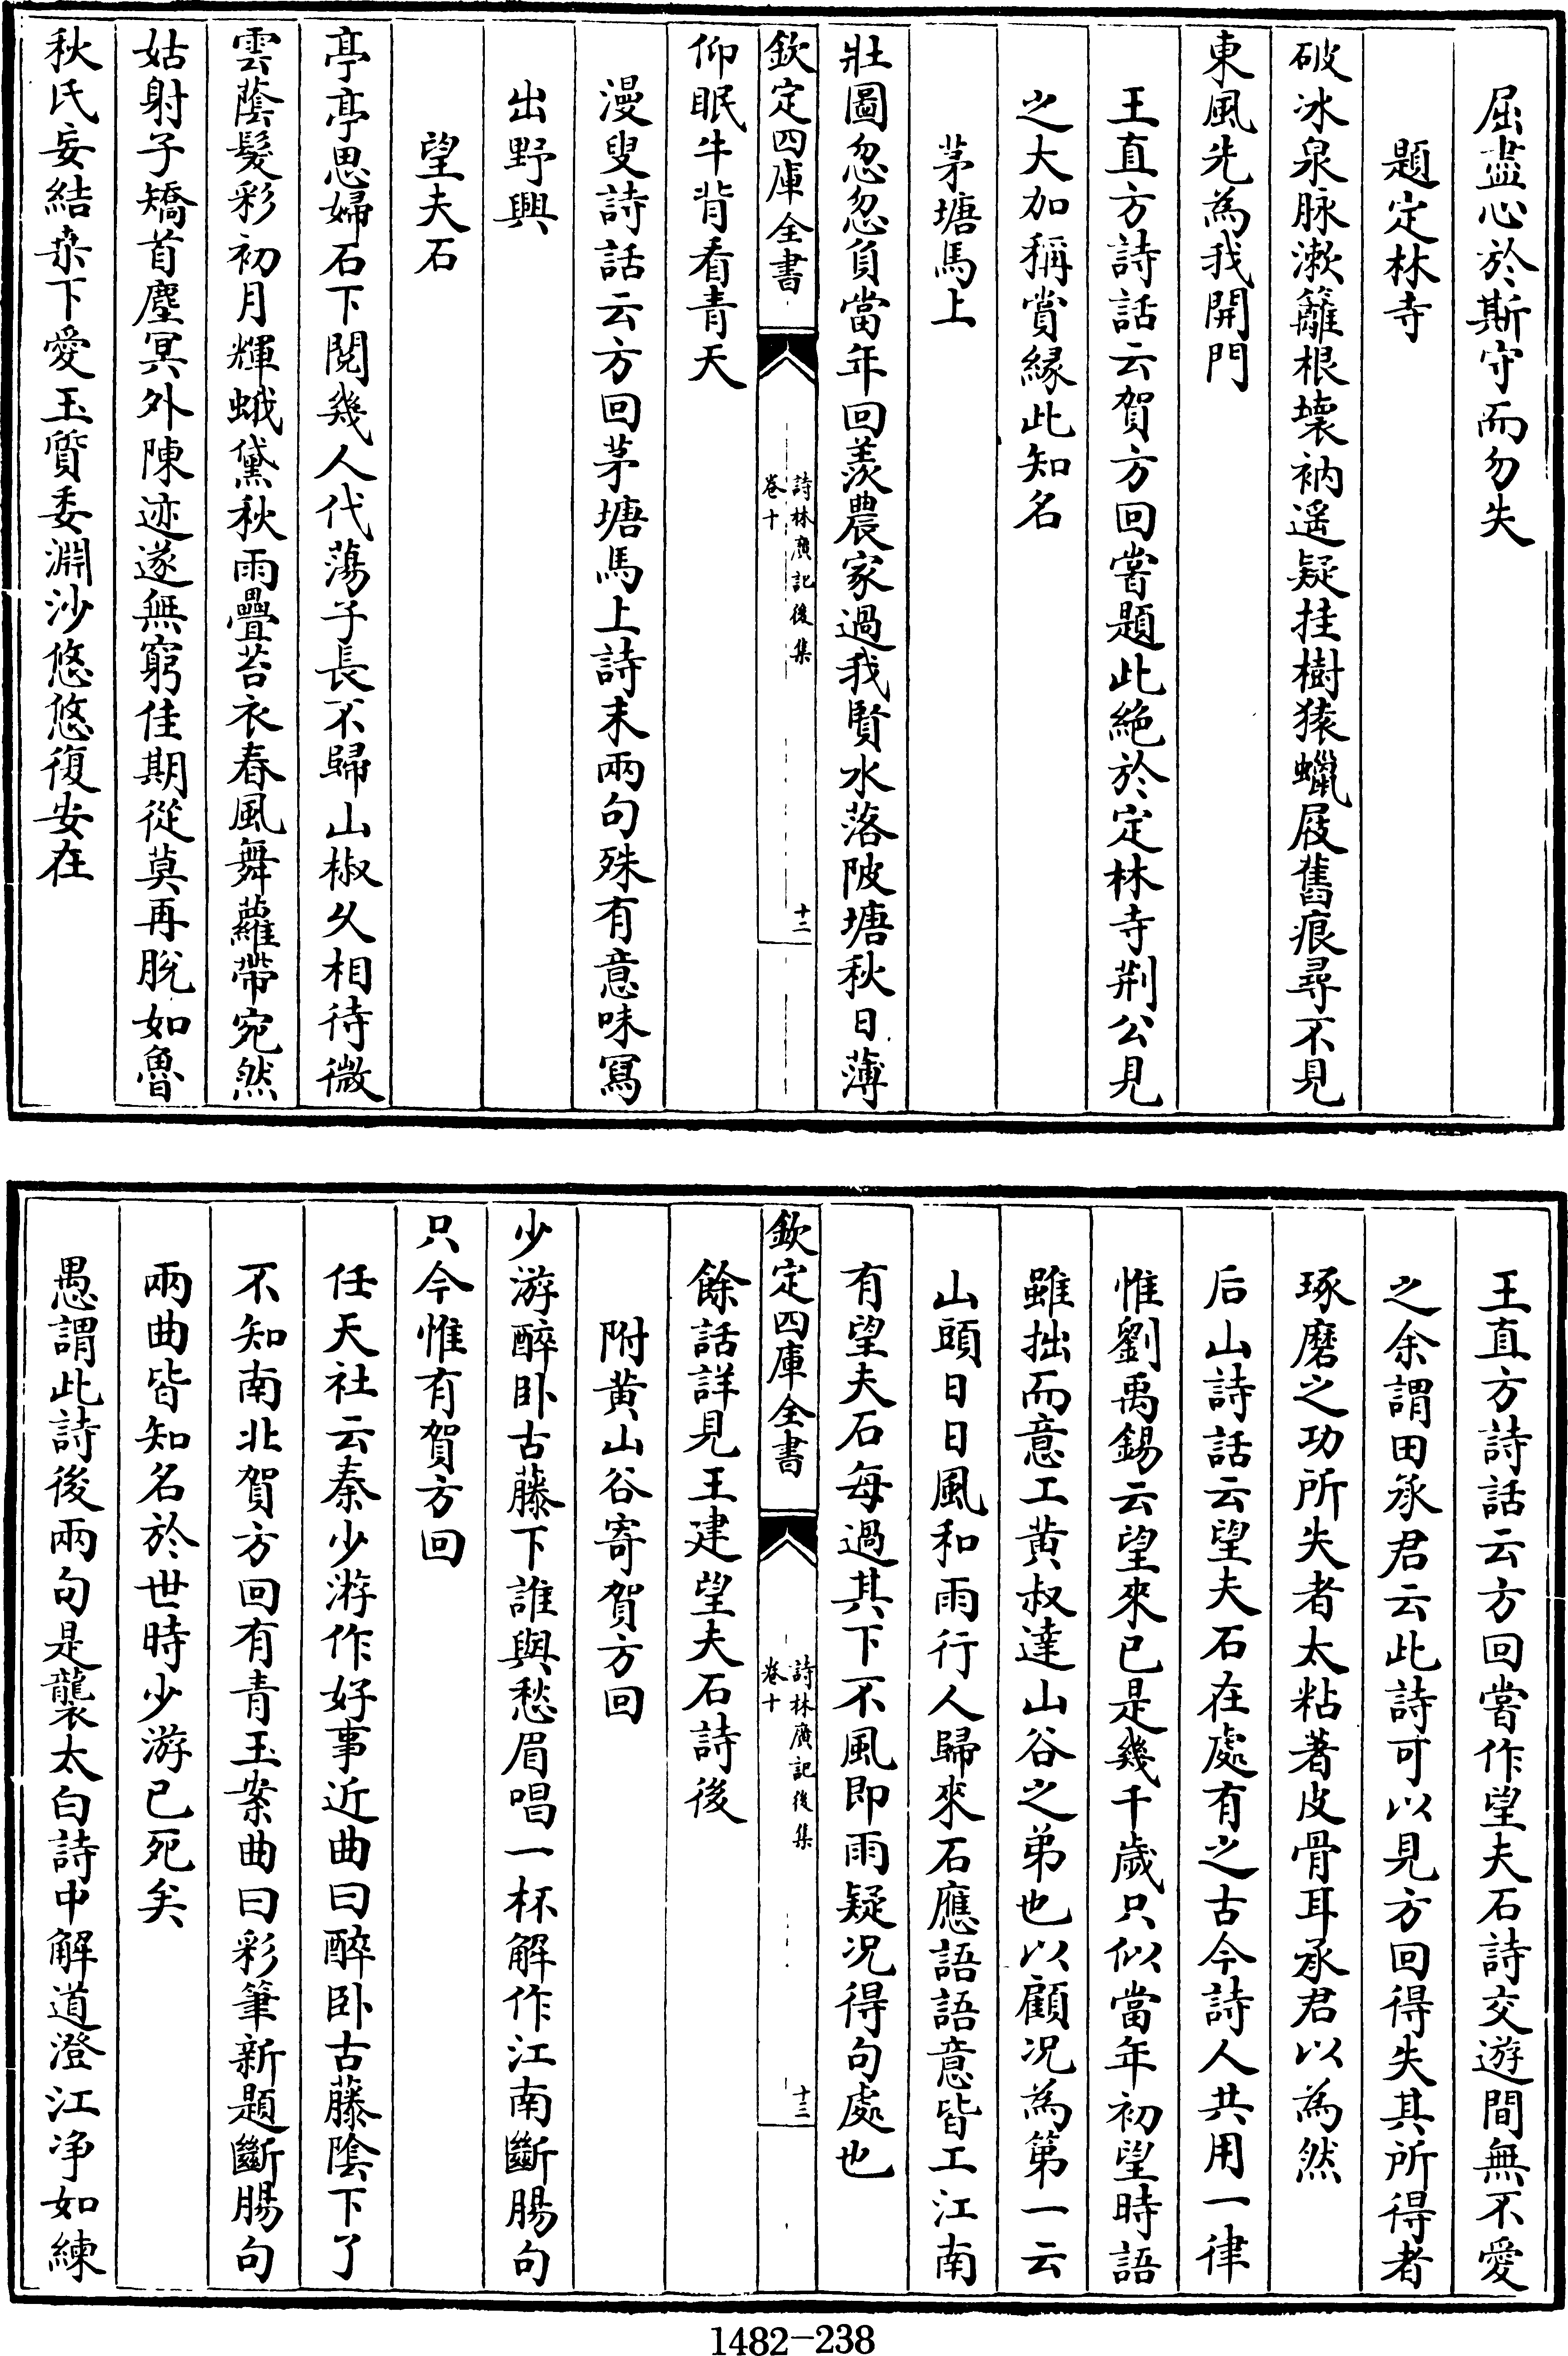 屈盡心於斯守而勿失
題定林寺
破冰泉脉漱籬根壞衲遥疑挂樹猿蠟屐舊痕尋不見
東風先為我開門
王直方詩話云賀方回嘗題此絶於定林寺荆公見
之大加稱賞縁此知名
茅塘馬上
壯圖忽忽負當年回羨農家過我賢水落陂塘秋日薄
欽定四庫全書
詩林廣記後集
卷十
十二
仰眠牛背看青天
漫叟詩話云方回茅塘馬上詩末兩句殊有意味冩
出野興
望夫石
亭亭思婦石下閲幾人代蕩子長不歸山椒久相待微
雲蔭髮彩初月輝蛾黛秋雨疊苔衣春風舞蘿帶宛然
姑射子矯首塵冥外陳迹遂無窮佳期從莫再脱如魯
秋氏妄結桒下愛玉質委淵沙悠悠復安在
王直方詩話云方回嘗作望夫石詩交遊間無不愛
之余謂田承君云此詩可以見方回得失其所得者
琢磨之功所失者太粘著皮骨耳承君以為然
后山詩話云望夫石在處有之古今詩人共用一律
惟劉禹錫云望來已是幾千歲只似當年初望時語
雖拙而意工黄叔達山谷之弟也以顧况為第一云
山頭日日風和雨行人歸來石應語語意皆工江南
有望夫石每過其下不風即雨疑况得句處也
欽定四庫全書
詩林廣記後集
卷十
十三
餘話詳見王建望夫石詩後
附黄山谷寄賀方回
少游醉卧古藤下誰與愁眉唱一杯解作江南斷腸句
只今惟有賀方回
任天社云秦少游作好事近曲曰醉卧古藤陰下了
不知南北賀方回有青玉案曲曰彩筆新題斷腸句
兩曲皆知名於世時少游已死矣
愚謂此詩後兩句是襲太白詩中解道澄江净如練
1482-238